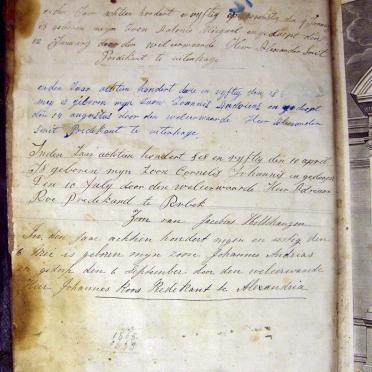 en den Jaar achten hondert en vyftig
is geboren myn Zoon Antonie Mi en gedoopt den
12 January door den weleerwaarde Heer Alexander Smit
Predekant te uitenhage
en den Jaar achten hondert drie en vyftig den 18
mey is geboren myn Zoon Joannis Andries en gedoopt
den 14 augustus door den weleerwaarde Heer Alexander
Smit Predekant te uitenhage
In den Jaar achten hondert ses en vyftig den 10 april
is geboren myn Zoon Cornelis Johannis en gedoopt
den 10 July door den weleerwaarde Heer
Roe Predekand te
Zoon van Jacobus Holtshauzen
In den Jaar achtien hondert negen en sestig den
6 Mei is geboren myn zoon Johannes Andrias
en gedoop den 6 September door den weleerwaarde
Heer Johannes Roos Predekant te Alexandria